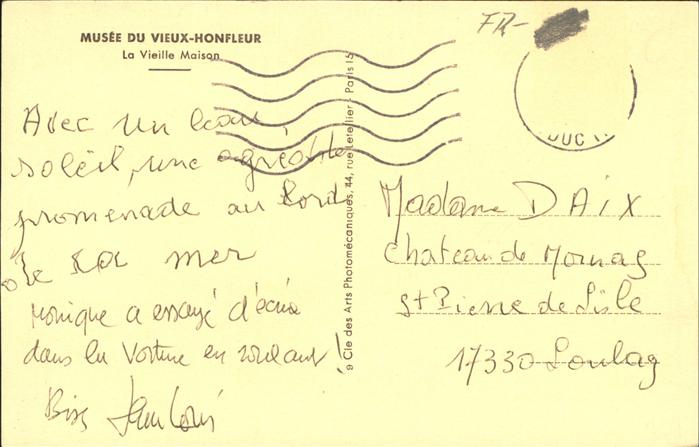 MUSÉE DU VIEUX-HONFLEUR
La Vieille Maison
FR-
DUC
Avec un beau
soleil, une agréable
promenade au bord
de la mer
Monique a essayé d'écrire
dans la voiture en roulant !
Bises Jean Louis
9 Cie des Arts Photomécaniques, 44, rue Letellier - Paris 15
Madame DAIX
Chateau de Mornag
St Pierre de l'isle
17330 Loulay